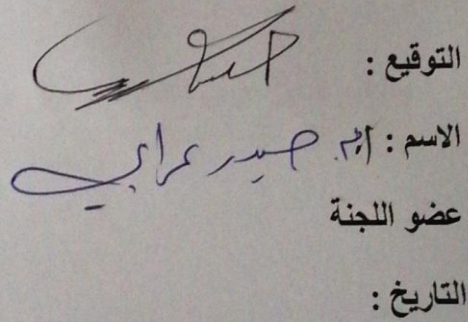 التوقيع :
الاسم : أ.م. حيدر عرابي
عضو اللجنة
التاريخ :